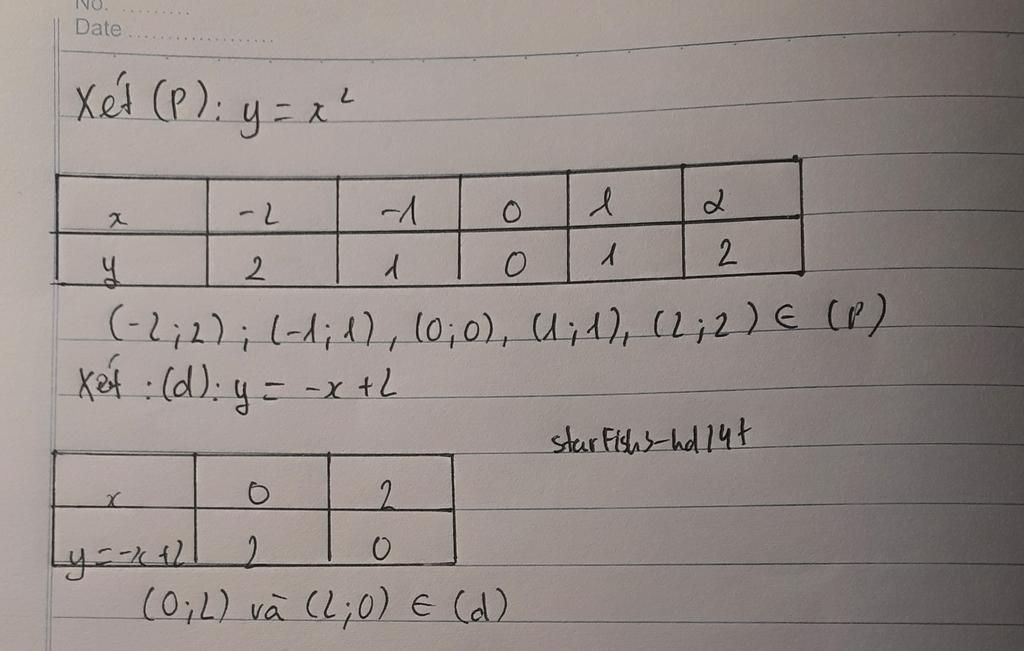 No. .........
Date ...................
Xét (P): y = x²
x -2 -1 0 1 2
y 2 1 0 1 2
(-2;2); (-1;1), (0;0), (1;1), (2;2) ∈ (P)
Xét : (d): y = -x +2
starFish3-hd14t
x 0 2
y=-x+2 2 0
(0;2) và (2;0) ∈ (d)